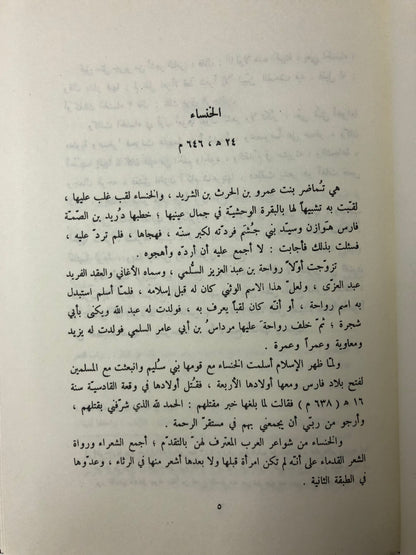 الخنساء
٢٤ ه ، ٦٤٦ م
هي تُماضر بنت عمرو بن الحرث بن الشريد ، والخنساء لقب غلب عليها ،
لقبت به تشبيهاً لها بالبقرة الوحشيّة في جمال عينيها ؛ خطبها دُريد بن الصّمّة
فارس هَوازن وسيّد بني جُشَم فردّته لكبر سنّه ، فهجاها ، فلم تردّ عليه ،
فسئلت بذلك فأجابت : لا أجمع عليه أن أردّه وأهجوه .
تزوّجت أوّلاً رواحة بن عبد العزيز السُّلمي ، وسماه الأغاني والعقد الفريد
عبد العزى ، ولعلّ هذا الاسم الوثني كان له قبل إسلامه ، فلمّا أسلم استبدل
به اسم رواحة ، أو أنّه كان لقباً يعرف به ، فولدت له عبد الله ويكنى بأبي
شجرة ؛ ثمّ خلف رواحة عليها مرداسُ بن أبي عامر السلمي فولدت له يزيد
ومعاوية وعمراً وعمرة .
ولمّا ظهر الإسلام أسلمت الخنساء مع قومها بني سُليم وانبعثت مع المسلمين
لفتح بلاد فارس ومعها أولادها الأربعة ، فقُتل أولادها في وقعة القادسيّة سنة
١٦ ه ( ٦٣٨ م ) فقالت لما بلغها خبر مقتلهم : الحمد لله الذي شرّفني بقتلهم ،
وأرجو من ربّي أن يجمعني بهم في مستقرّ الرحمة .
والخنساء من شواعر العرب المعترف لهنّ بالتقدّم ؛ أجمع الشعراء ورواة
الشعر القدماء على أنّه لم تكن امرأة قبلها ولا بعدها أشعر منها في الرثاء ، وعدّوها
في الطبقة الثانية .
٥